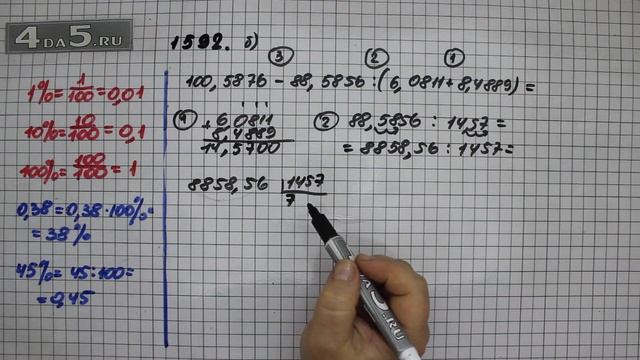 4DA5.RU
1592. б)
③ ② ①
100,5876 - 88,5856 : (6,0811 + 8,4889) =
1% = 1/100 = 0,01
10% = 10/100 = 0,1
100% = 100/100 = 1
0,38 = 0,38 · 100% =
= 38%
45% = 45 : 100 =
= 0,45
① 6,0811
+ 8,4889
14,5700
② 88,5856 : 14,57 =
= 8858,56 : 1457 =
8858,56 | 1457
7